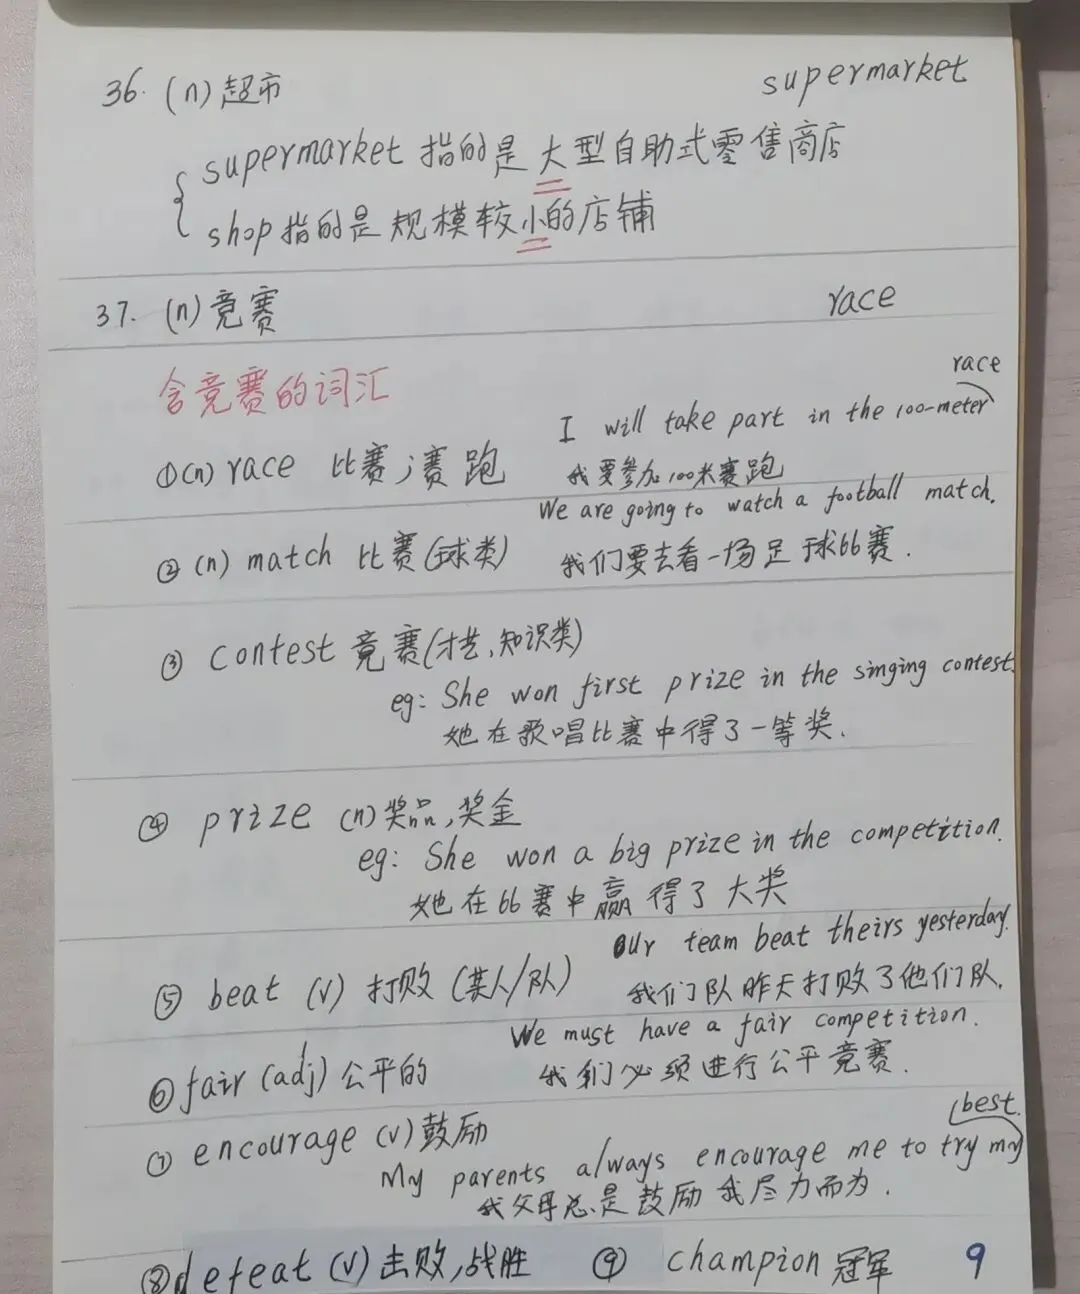 36. (n) 超市 supermarket
supermarket 指的是大型自助式零售商店
shop 指的是规模较小的店铺
37. (n) 竞赛 race
含竞赛的词汇
race
I will take part in the 100-meter
①(n) race 比赛;赛跑 我要参加100米赛跑
We are going to watch a football match.
② (n) match 比赛(球类) 我们要去看一场足球比赛.
③ contest 竞赛(才艺,知识类)
eg: She won first prize in the singing contest.
她在歌唱比赛中得了一等奖.
④ prize (n) 奖品,奖金
eg: She won a big prize in the competition.
她在比赛中赢得了大奖
Our team beat theirs yesterday.
⑤ beat (v) 打败(某人/队) 我们队昨天打败了他们队.
We must have a fair competition.
⑥ fair (adj) 公平的 我们必须进行公平竞赛.
⑦ encourage (v) 鼓励
best.
My parents always encourage me to try my
我父母总是鼓励我尽力而为.
⑧ defeat (v) 击败,战胜 ⑨ champion 冠军 9